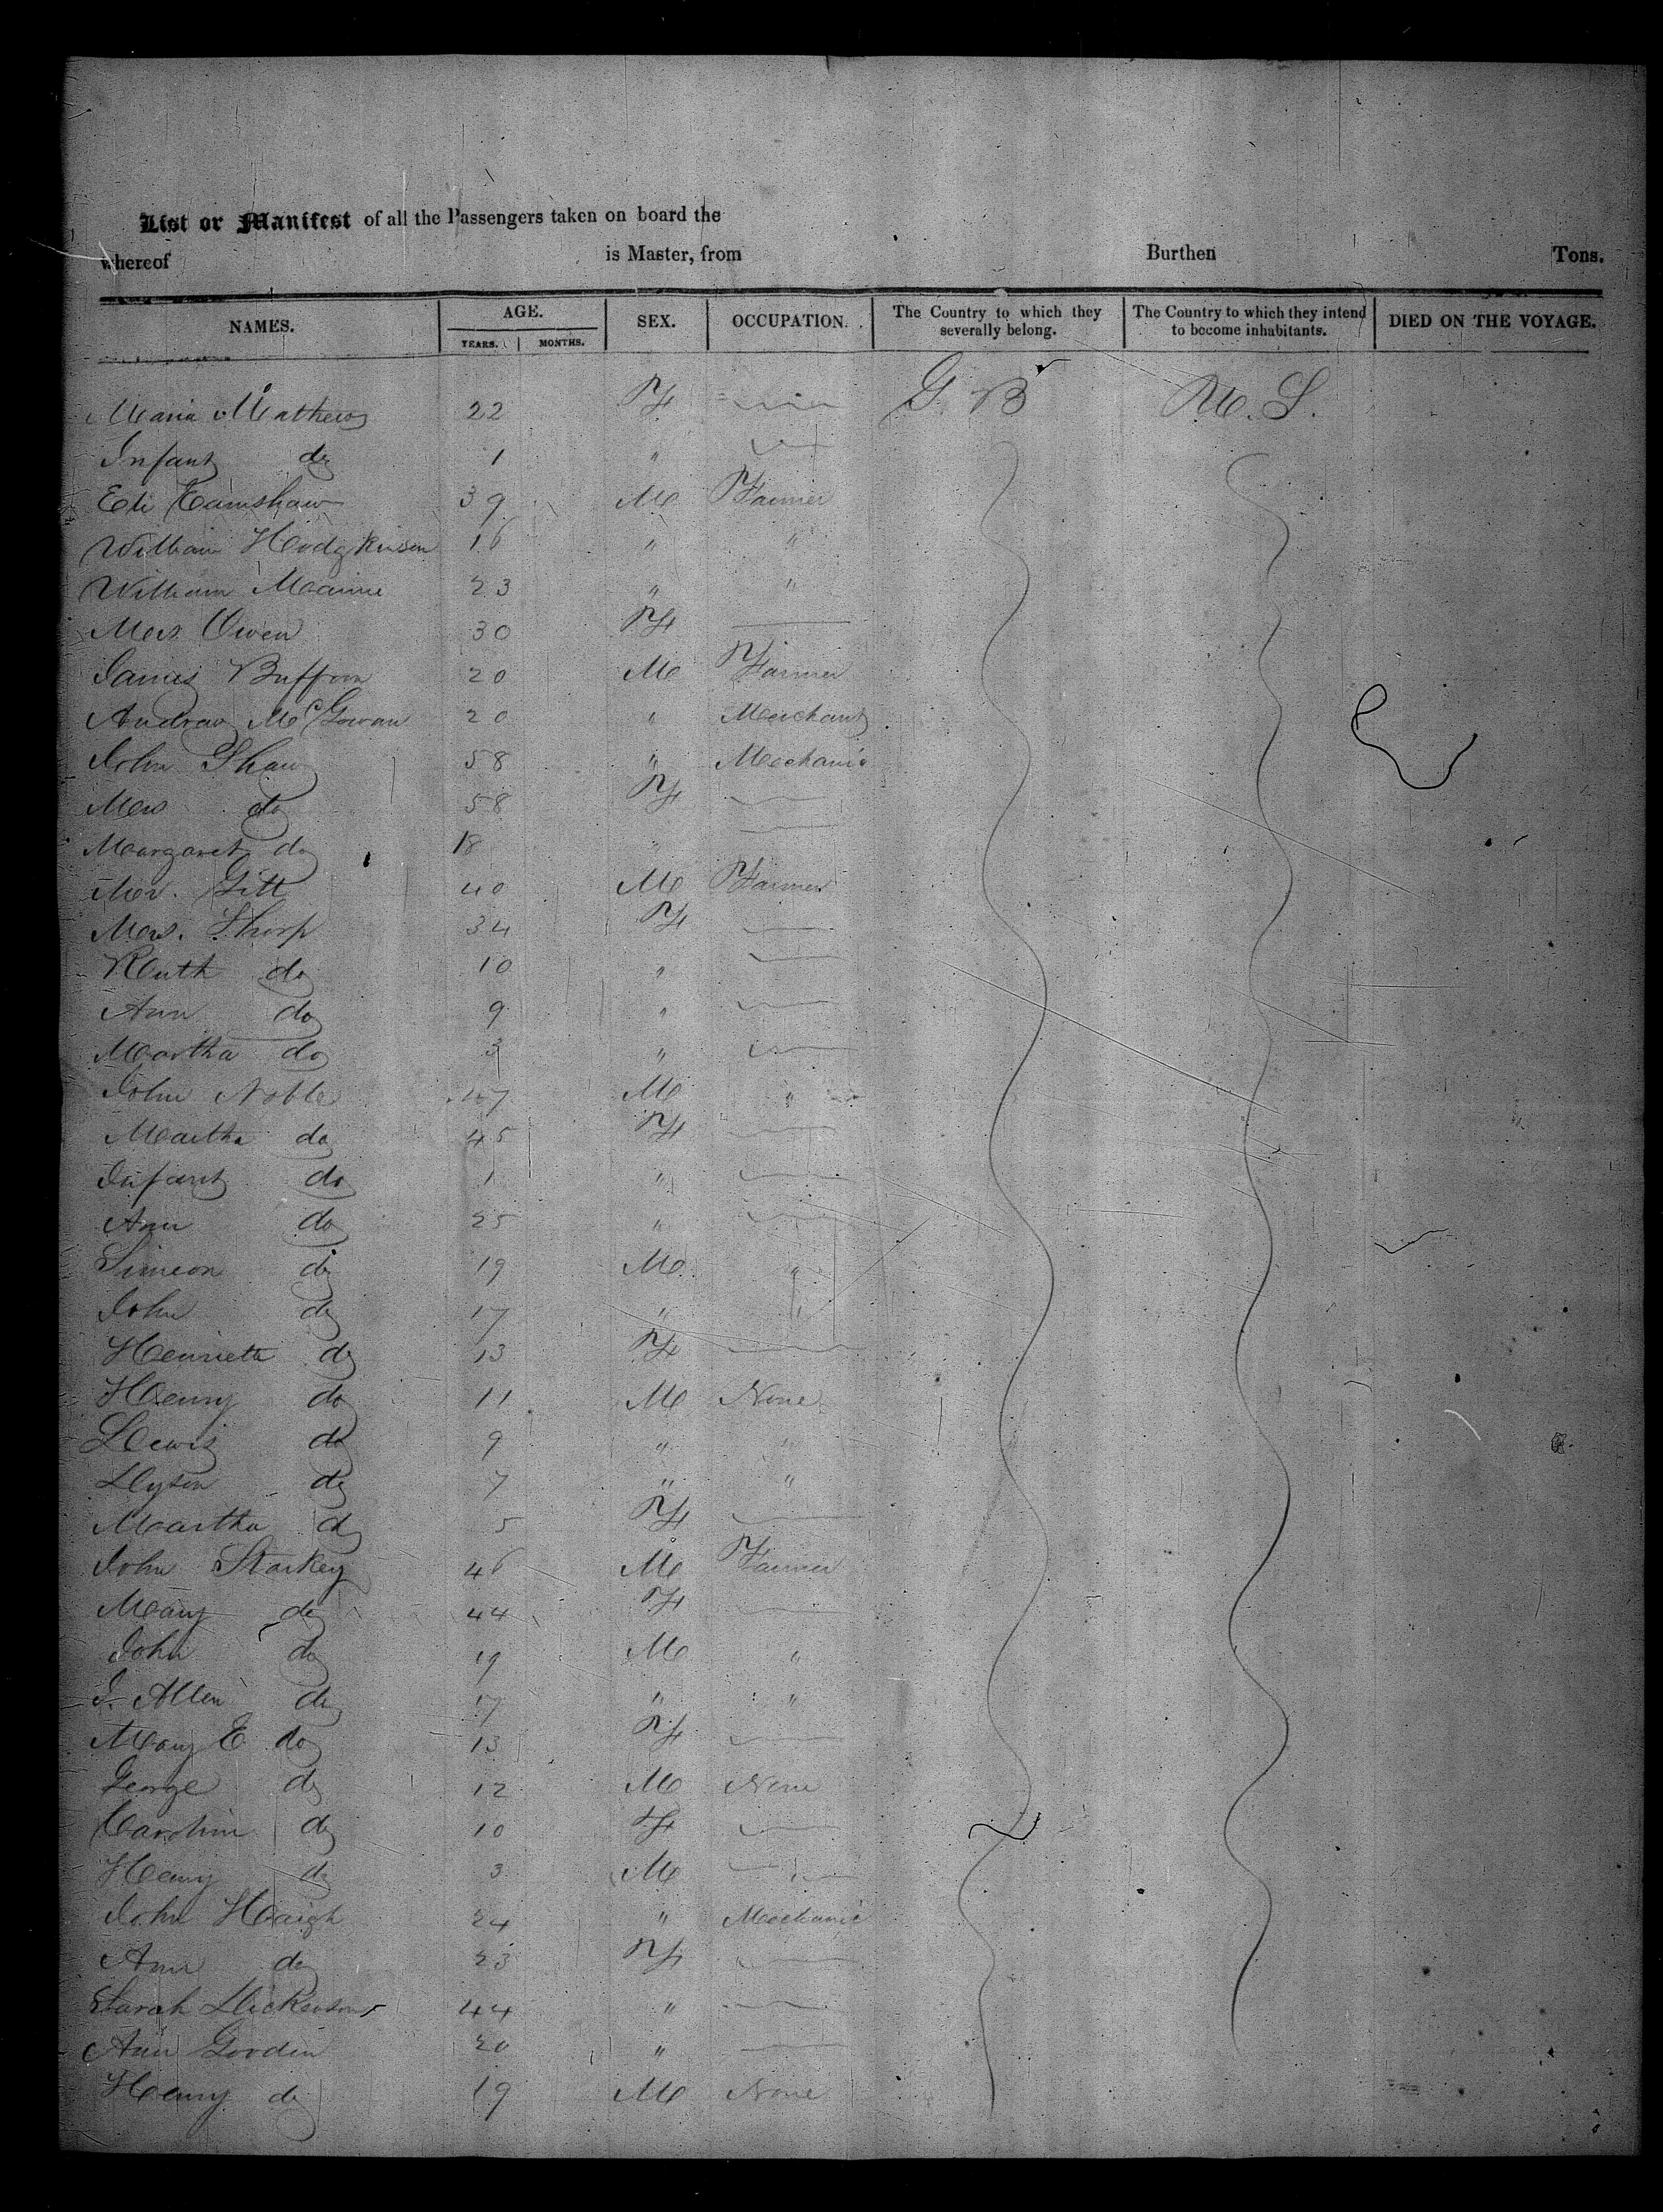 List or Manifest of all the Passengers taken on board the
whereof is Master, from Burthen Tons.
NAMES. AGE. SEX. OCCUPATION. The Country to which they severally belong. The Country to which they intend to become inhabitants. DIED ON THE VOYAGE.
YEARS. MONTHS.
Maria Mathews 22 F G. B U. S.
Infant do 1 "
Eli Earnshaw 39 M Farmer
William Hodgkinson 16 " "
William 23 " "
Mrs. Owen 30 F
James 20 M Farmer
Andrew McGowan 20 " Merchant
John Shaw 58 " Mechanic
Mrs do 58 F
Margaret do 18 "
Mr. Gill 40 M Farmer
Mrs. Thorp 34 F
Ruth do 10 "
Ann do 9 "
Martha do 3 "
John Noble 47 M "
Martha do 45 F
Infant do 1 "
Ann do 25 "
Simeon do 19 M "
John do 17 " "
Henrietta do 13 F
Henry do 11 M None
Lewis do 9 " "
do 7 " "
Martha do 5 F
John Starkey 46 M Farmer
Mary do 44 F
John do 19 M "
J. Allen do 17 " "
Mary E do 13 F
George do 12 M None
Caroline do 10 F
Henry do 3 M "
John Haigh 24 " Mechanic
Ann do 23 F
Sarah Dickenson 44 "
Ann Gordin 20 "
Henry do 19 M None